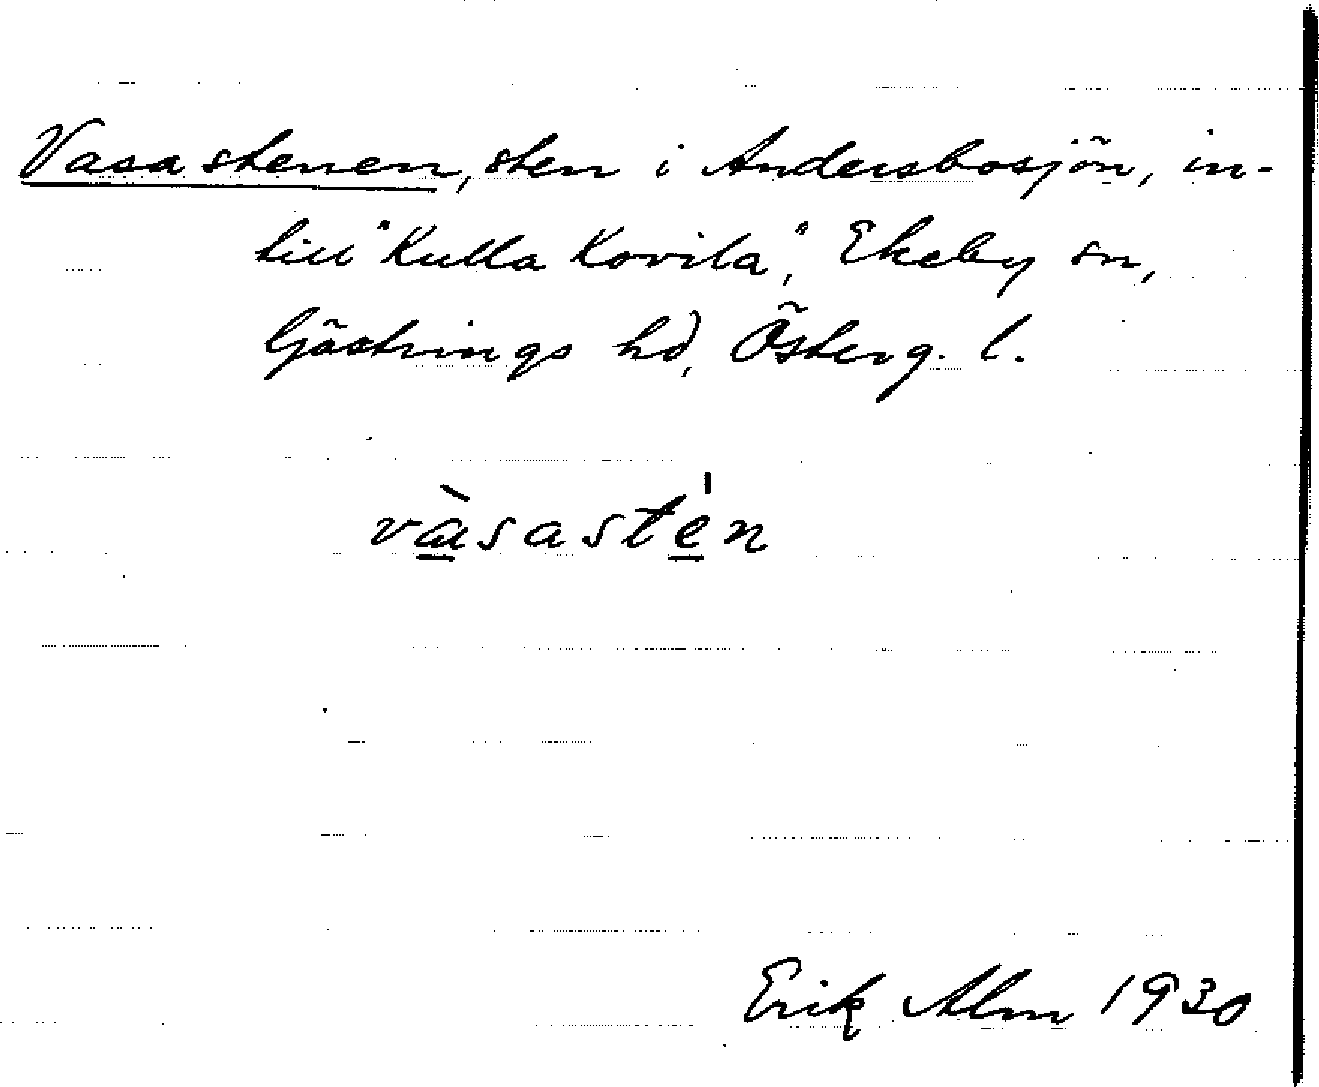 Vasastenen, sten i Andersbosjön, in-
till "Kulla Kovila", Ekeby sn,
Göstrings hd, Österg. l.
vàsastén
Erik Alm 1930